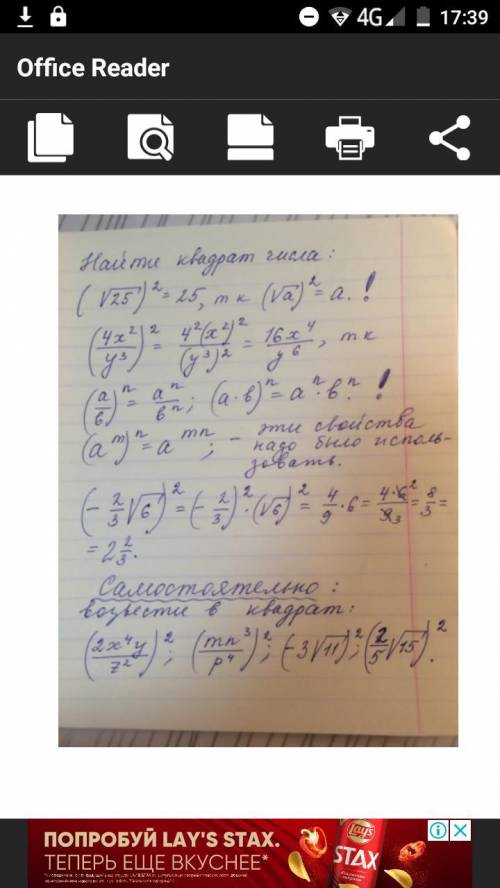 4G 17:39
Office Reader
Найти квадрат числа:
(√25)² = 25, т к (√a)² = a. !
(4x²/y³)² = 4²(x²)²/(y³)² = 16x⁴/y⁶, т к
(a/b)ⁿ = aⁿ/bⁿ; (a·b)ⁿ = aⁿ·bⁿ. !
(aᵐ)ⁿ = aᵐⁿ; – эти свойства
надо было исполь-
зовать.
(-2/3√6)² = (-2/3)²·(√6)² = 4/9·6 = 4·6²/9₃ = 8/3 =
= 2 2/3.
Самостоятельно:
возвести в квадрат:
(2x⁴y/z²)²; (mn³/p⁴)²; (-3√11)²; (2/5√15)².
ПОПРОБУЙ LAY'S STAX.
ТЕПЕРЬ ЕЩЕ ВКУСНЕЕ*
Lay's
STAX